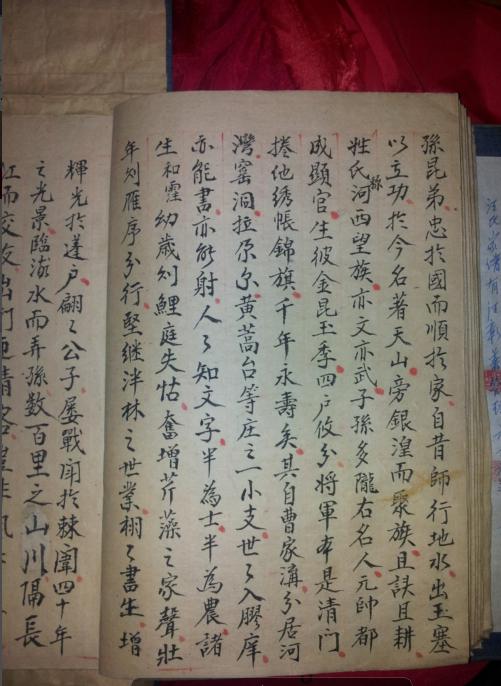 孫昆弟忠扵國而順扵家自昔師行地水出玉塞
以立功扵今名著天山旁銀湟而聚族且訣且耕
姓氏繇河西望族亦文亦武子孫多隴右名人元帥都
成顯官生彼金昆玉季四户攸分將軍本是清門
捲他綉帳錦旗千年永壽矣其自曹家溝分居河
灣窑洞拉原尕黄蒿台等庄之一小支世々入膠庠
亦能書亦能射人々知文字半為士半為農諸
生和霪幼歲列鯉庭失怙奮增芹藻之家聲壯
年列雁序分行堅継泮林之世業栩々書生增
輝光扵蓬户翩々公子屡戰闱扵棘闈四十年
之光景臨洮水而弄孫数百里之山川隔長
江而